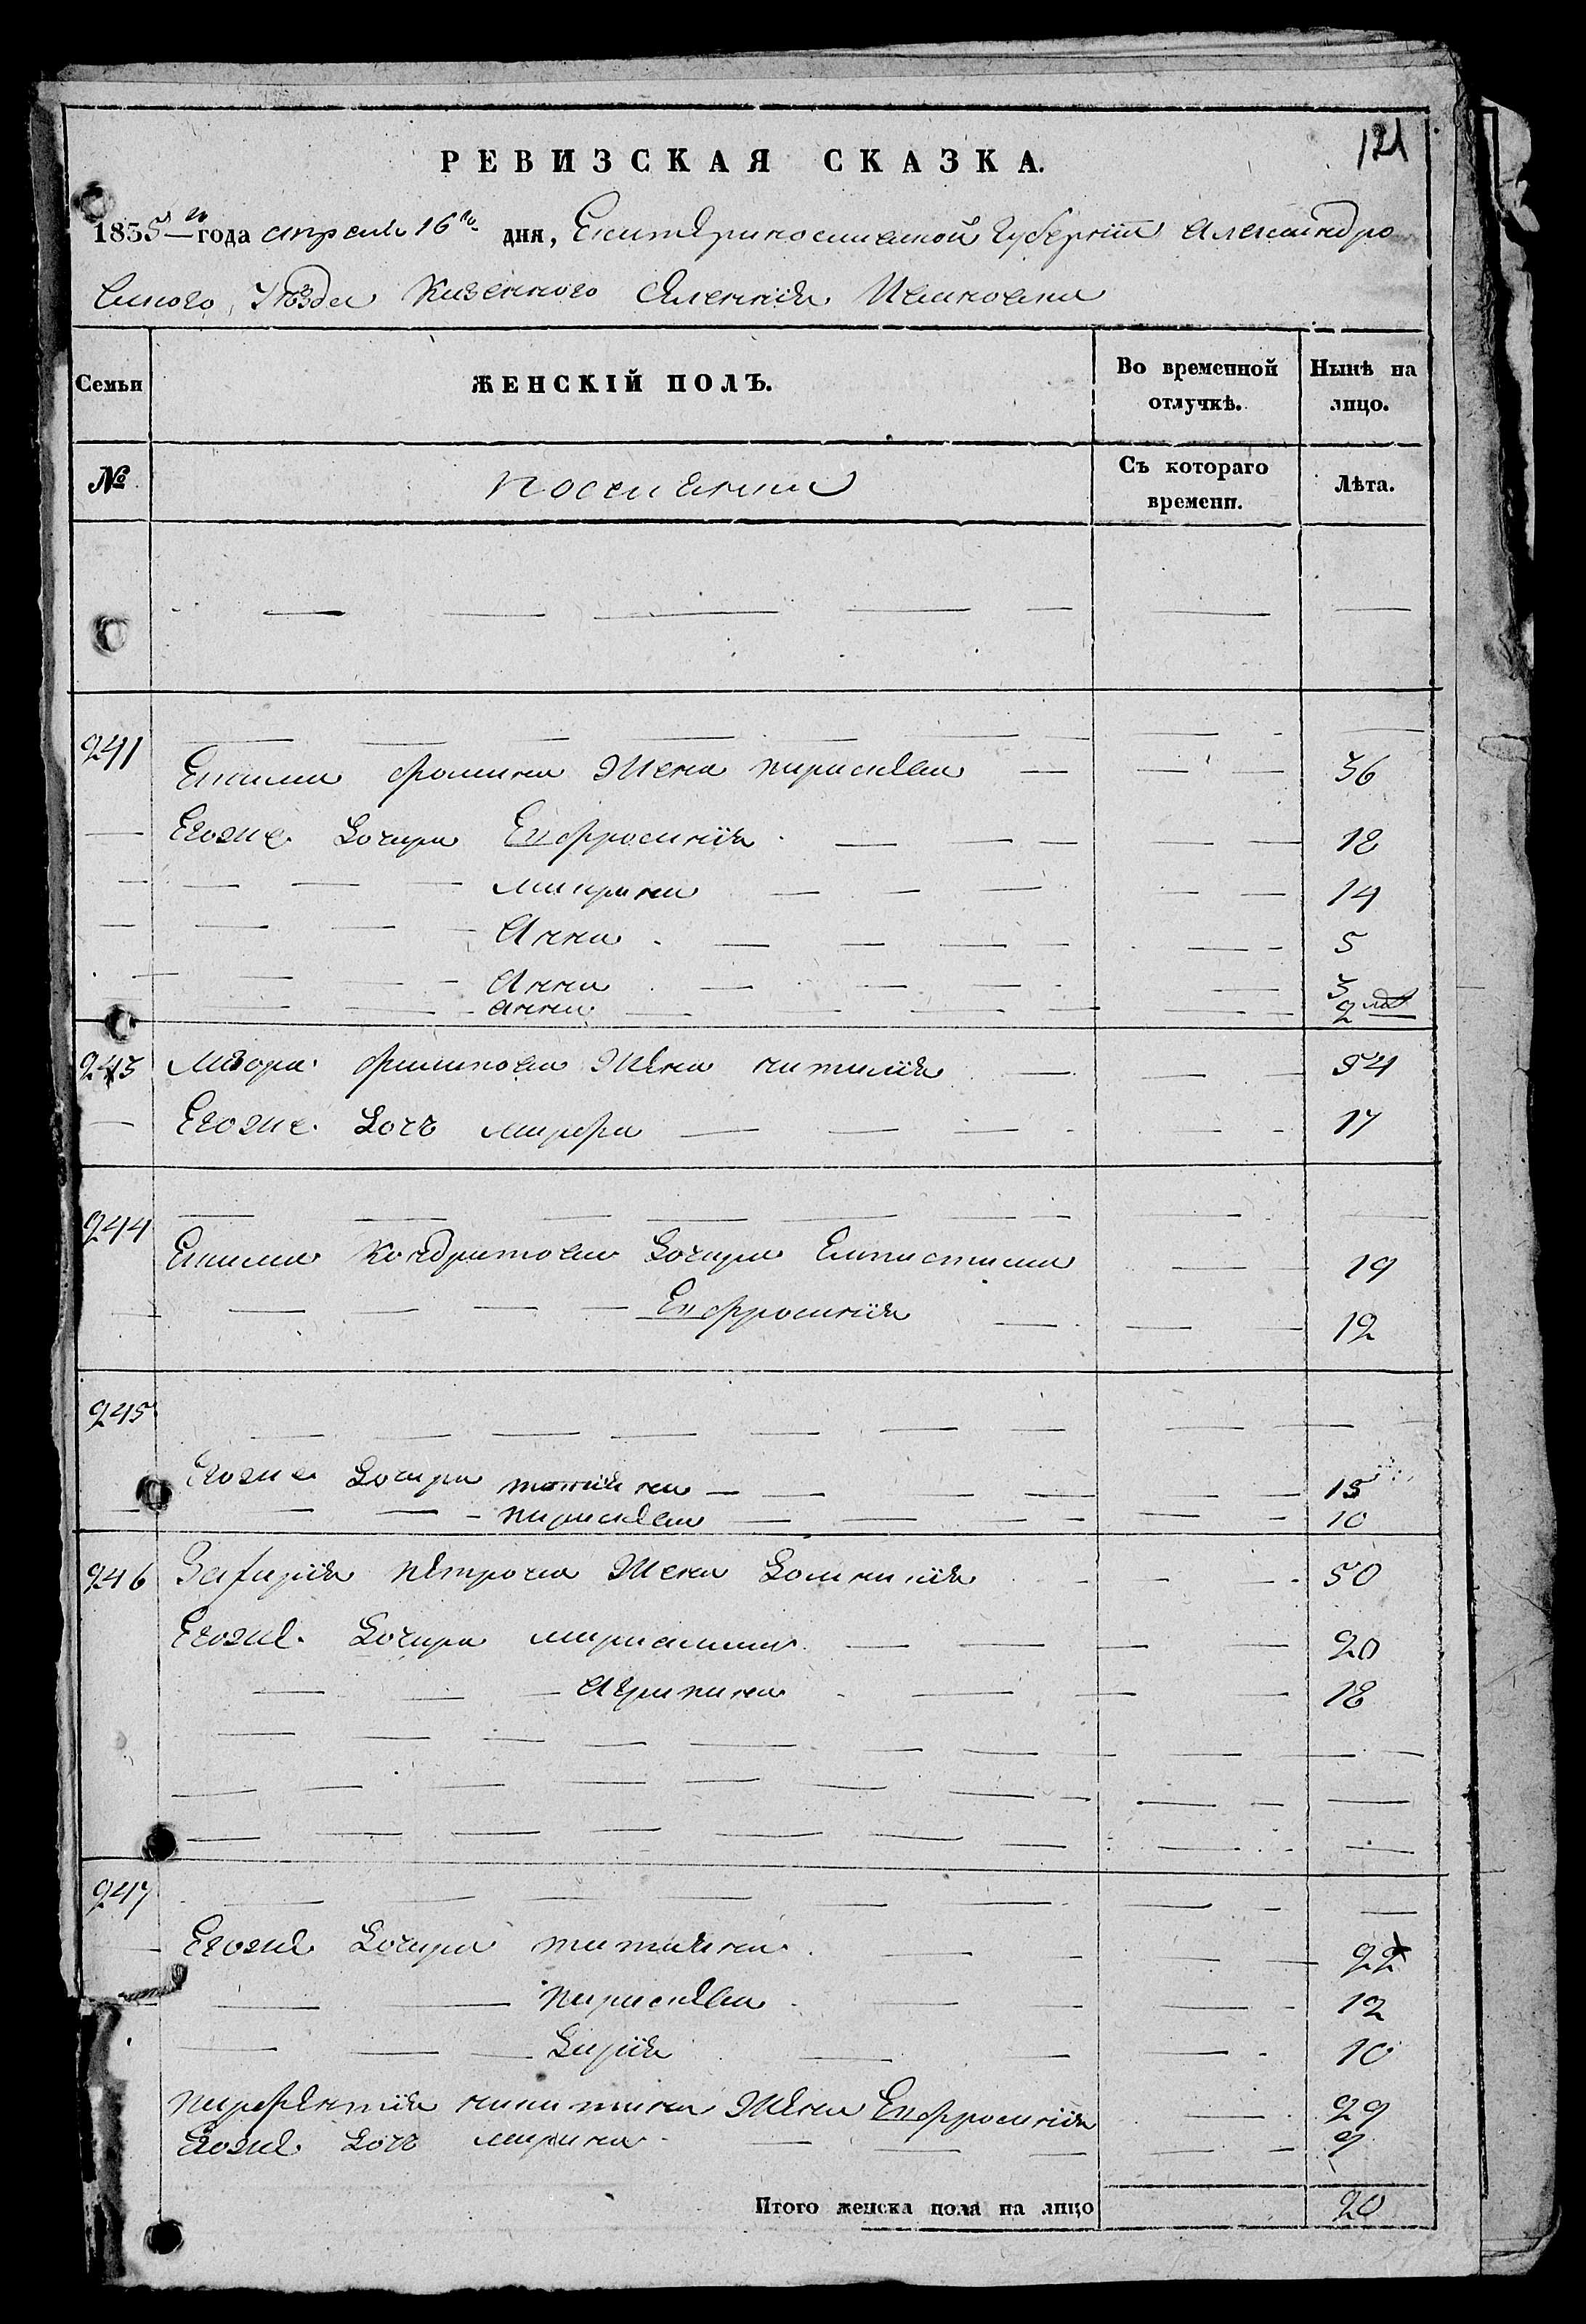 121
РЕВИЗСКАЯ СКАЗКА.
1835 го года апреля 16 го дня, Екатериносл авской губернии Александро
вского Уѣзда Казенного селения Ивановка
Семьи
ЖЕНСКІЙ ПОЛЪ.
Во временной отлучкѣ.
Нынѣ на лицо.
№
поселянки
Съ котораго времени.
Лѣта.
241
Екима Фомина жена параскева 36
Егоже Дочери Ефросинія 18
макрина 14
Анна 5
Анна 3
анна 2
243 Филипова жена наталія 54
Егоже Дочь марфа 17
244
Екима Кондратова Дочери Епистима 19
Ефросинія 12
245
Егоже Дочери 15
параскева 10
246 Захарія петрова жена Домникія 50
Егоже Дочери мариамна 20
Агрипина 18
247
Егоже Дочери татіяна 22
параскева 12
Дарія 10
парфентія никитина жена Ефросинія 29
Егоже Дочь марина 9
Итого женска пола на лицо 20